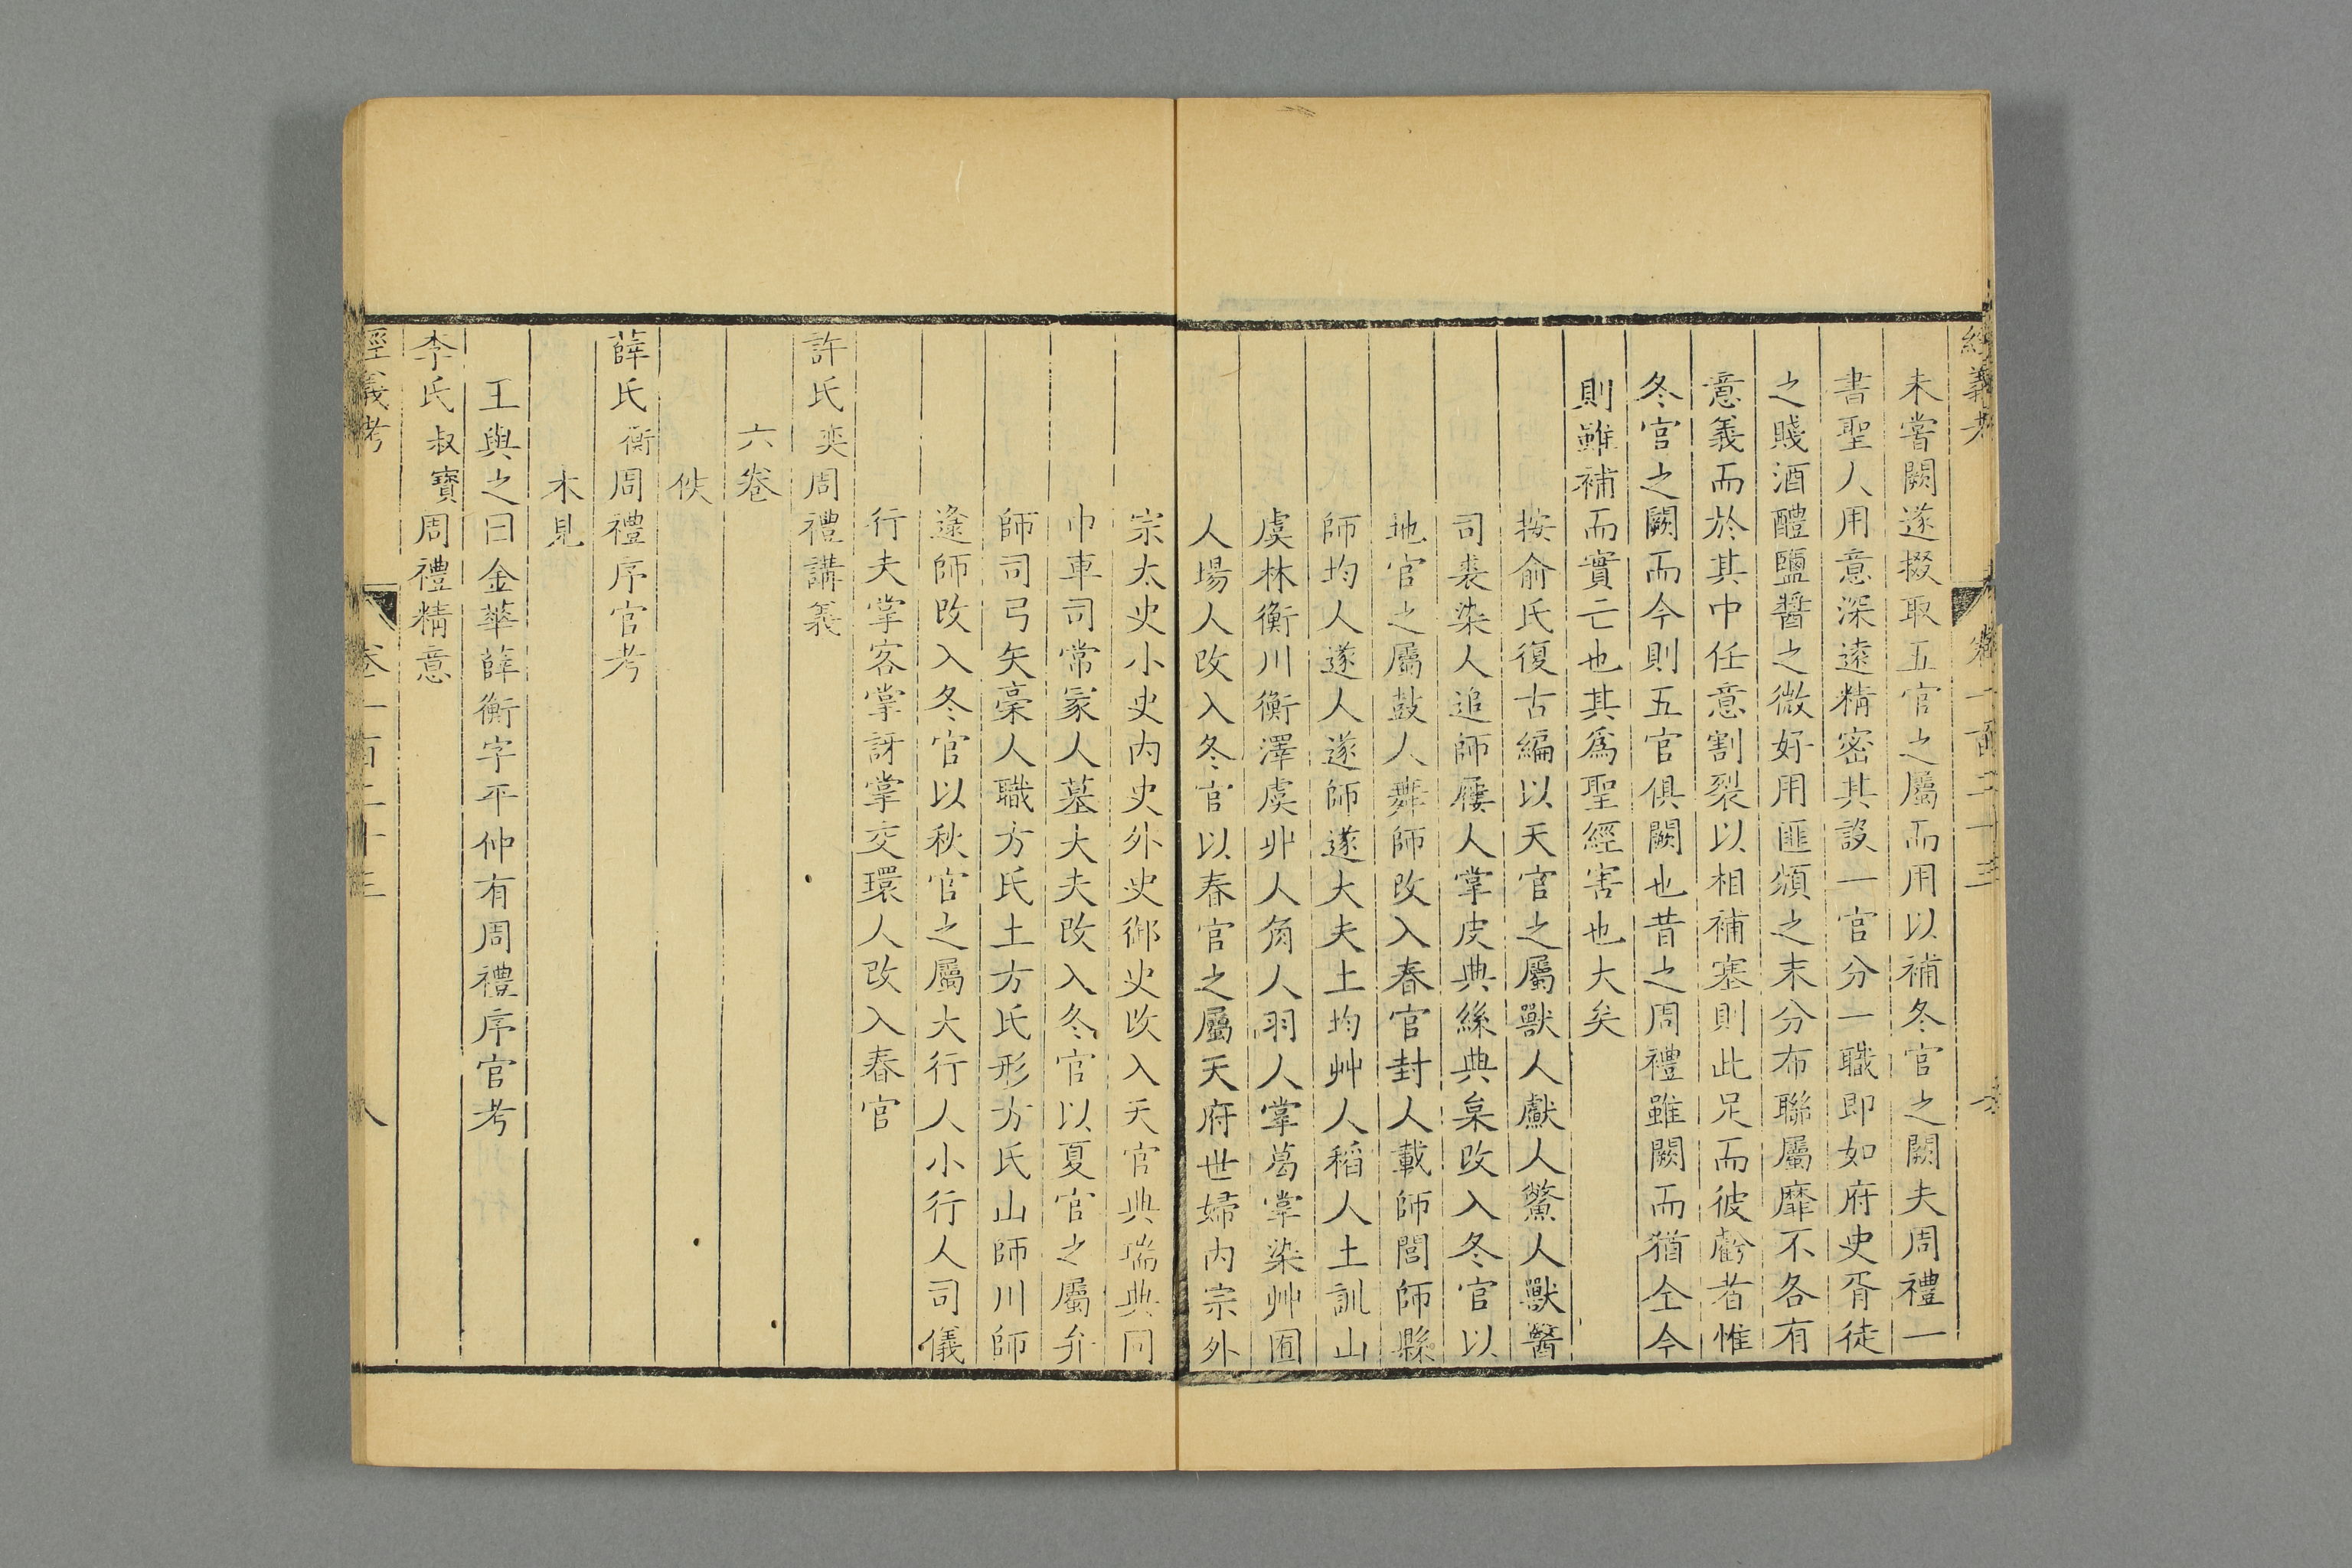 經義考 卷一百二十三 七
未嘗闕遂掇取五官之屬而用以補冬官之闕夫周禮一
書聖人用意深遠精密其設一官分一職即如府史胥徒
之賤酒醴鹽醬之微好用匪頒之末分布聯屬靡不各有
意義而於其中任意割裂以相補塞則此足而彼虧者惟
冬官之闕而今則五官俱闕也昔之周禮雖闕而猶仝今
則雖補而實亡也其為聖經害也大矣
按俞氏復古編以天官之屬獸人䱷人鱉人獸醫
司裘染人追師屨人掌皮典絲典枲改入冬官以
地官之屬鼓人舞師改入春官封人載師閭師縣
師均人遂人遂師遂大夫土均艸人稻人土訓山
虞林衡川衡澤虞丱人角人羽人掌葛掌染艸囿
人場人改入冬官以春官之屬天府世婦内宗外
宗太史小史内史外史御史改入天官典瑞典同
巾車司常冢人墓大夫改入冬官以夏官之屬弁
師司弓矢槀人職方氏土方氏形方氏山師川師
邍師改入冬官以秋官之屬大行人小行人司儀
行夫掌客掌訝掌交環人改入春官
許氏奕周禮講義
六卷
佚
薛氏衡周禮序官考
未見
王與之曰金華薛衡字平仲有周禮序官考
李氏叔寶周禮精意
經義考 卷一百二十三 八